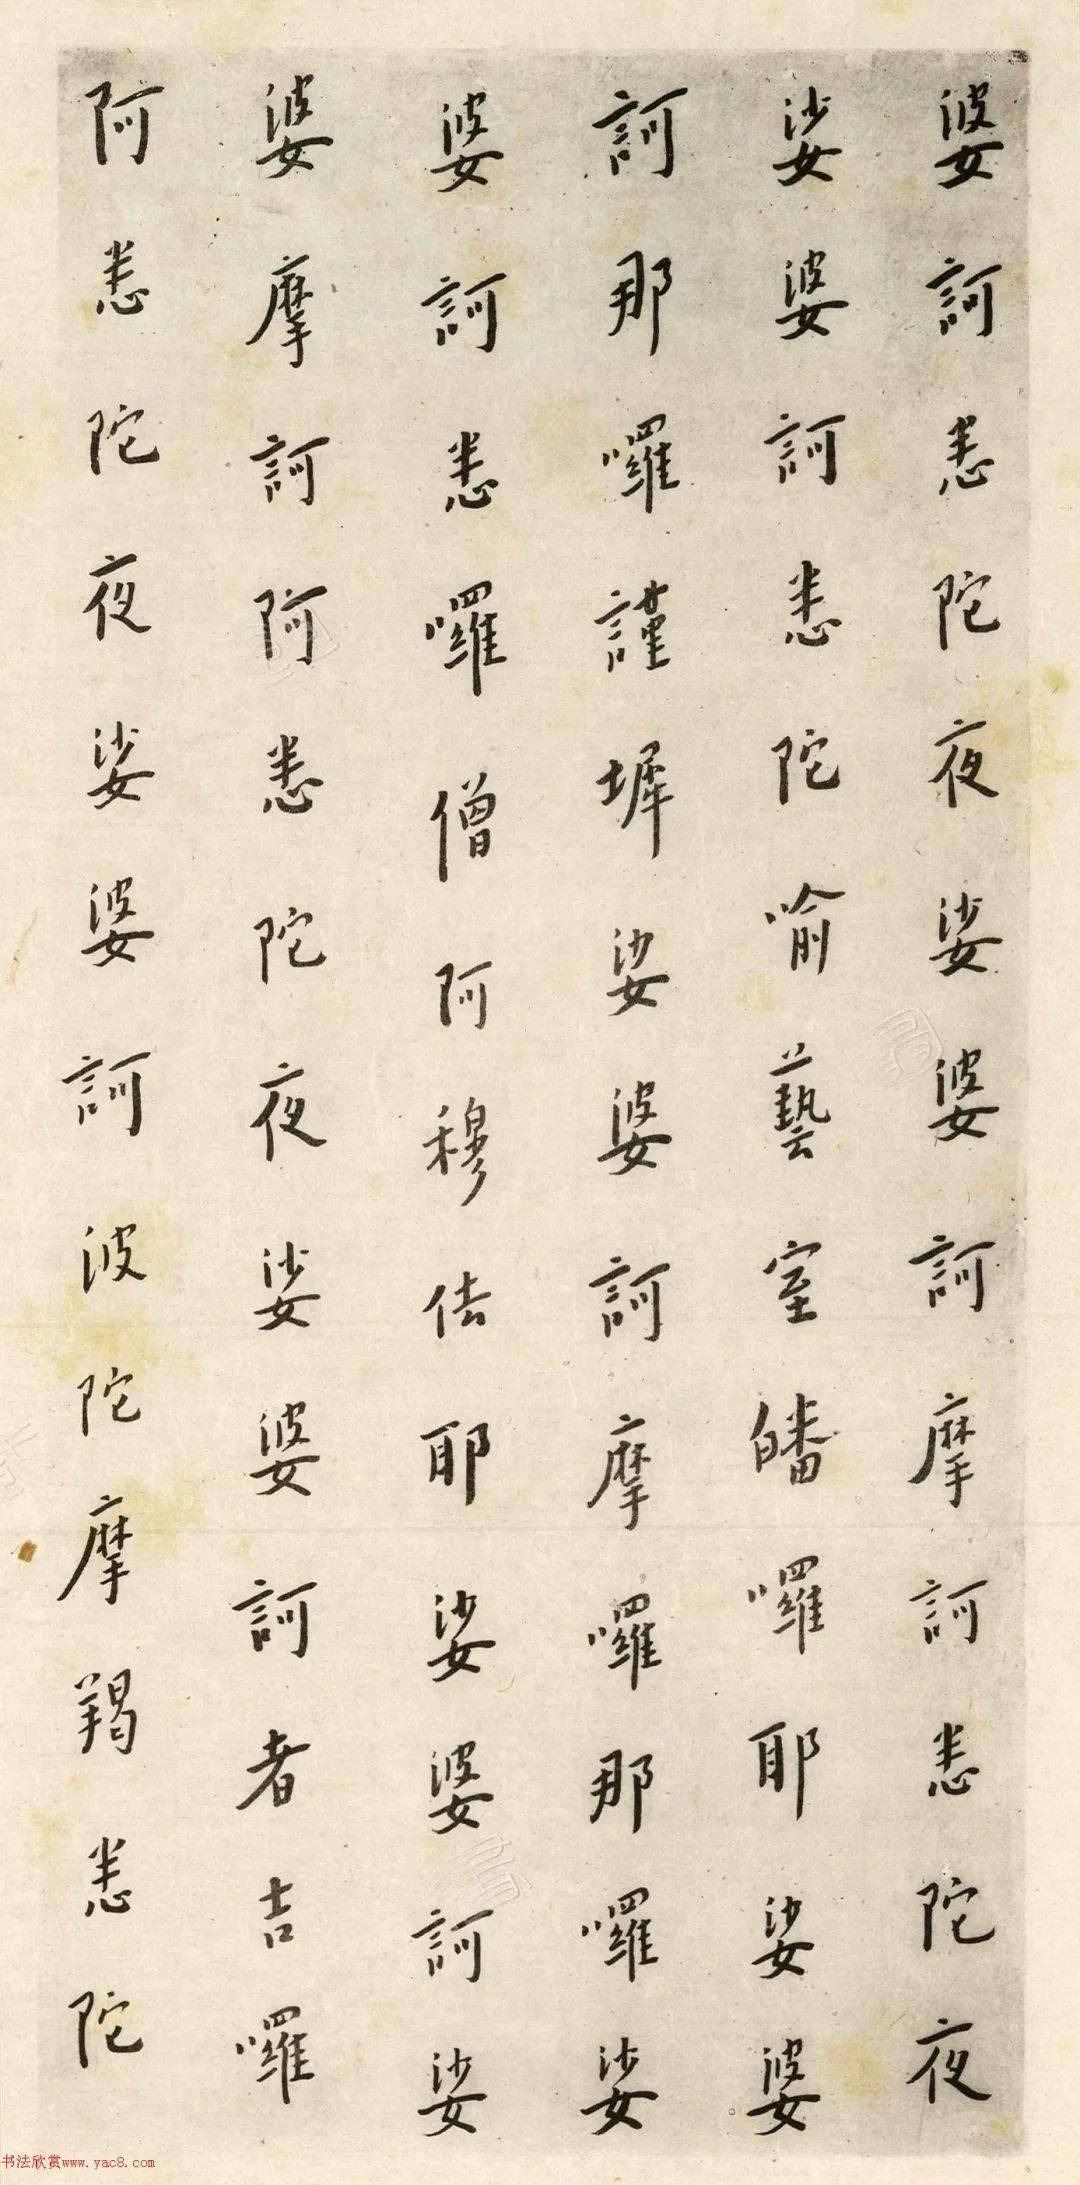 婆訶悉陀夜娑婆訶摩訶悉陀夜
娑婆訶悉陀喻藝室皤囉耶娑婆
訶那囉謹墀娑婆訶摩囉那囉娑
婆訶悉囉僧阿穆佉耶娑婆訶娑
婆摩訶阿悉陀夜娑婆訶者吉囉
阿悉陀夜娑婆訶波陀摩羯悉陀
书法欣赏www.yac8.com